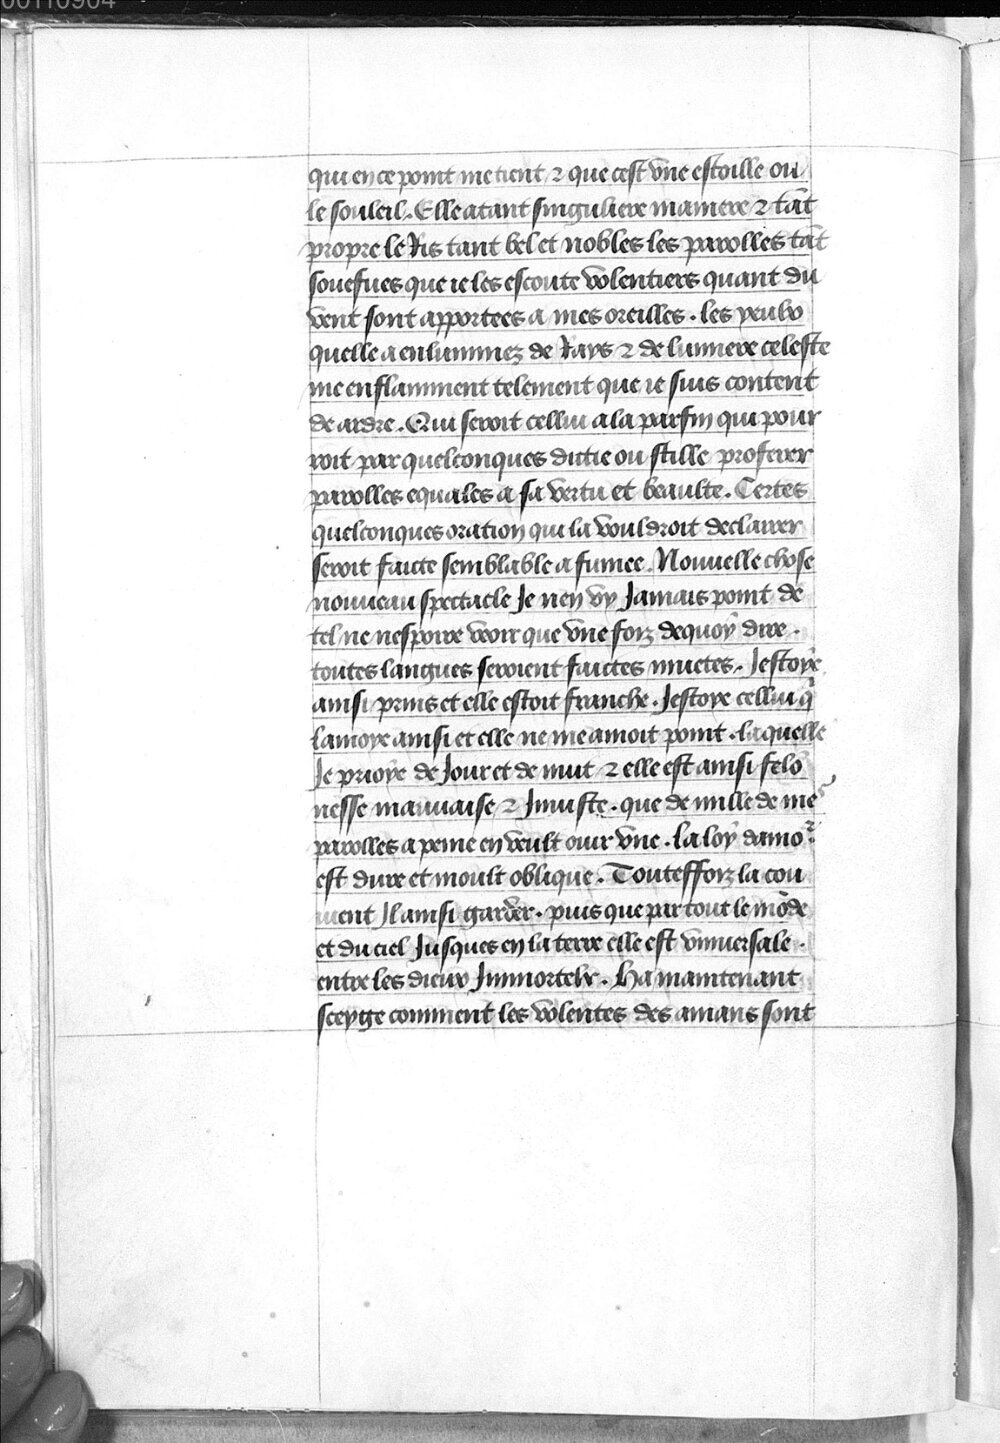 00110904
qui en ce point me tient ⁊ que cest vne estoille ou
le souleil. Elle a tant singuliere maniere ⁊ tāt
propre le Ris tant bel et nobles les parolles tāt
souefues que ie les escoute volentiers quant du
vent sont apportees a mes oreilles. les yeulx
quelle a enluminez de Rays ⁊ de lumiere celeste
me enflamment telement que ie suis content
de ardre. Qui seroit cellui a la parfin qui pour
roit par quelconques dictie ou stille proferer
parolles equales a sa vertu et beaulte. Certes
quelconques oration qui la vouldroit declairer
seroit faicte semblable a fumee. Nouuelle chose
nouueau spectacle Je nen vy Jamais point de
tel ne nespoire veoir que vne foiz dequoy dire.
toutes langues seroient faictes muetes. Jestoye
ainsi prins et elle estoit franche. Jestoye cellui q̄
lamoye ainsi et elle ne me amoit point. laquelle
Je prioye de Jour et de nuit ⁊ elle est ainsi felō
nesse mauuaise ⁊ Jniuste. que de mille de mes
parolles a peine en veult ouir vne. la loy damoʳ
est dure et moult oblique. Touteffoiz la cou
uient Jl ainsi garder. puis que par tout le mōde
et du ciel Jusques en la terre elle est vniuersale.
entre les dieux Jmmortelx. Ha maintenant
sceyge comment les volentes des amans sont